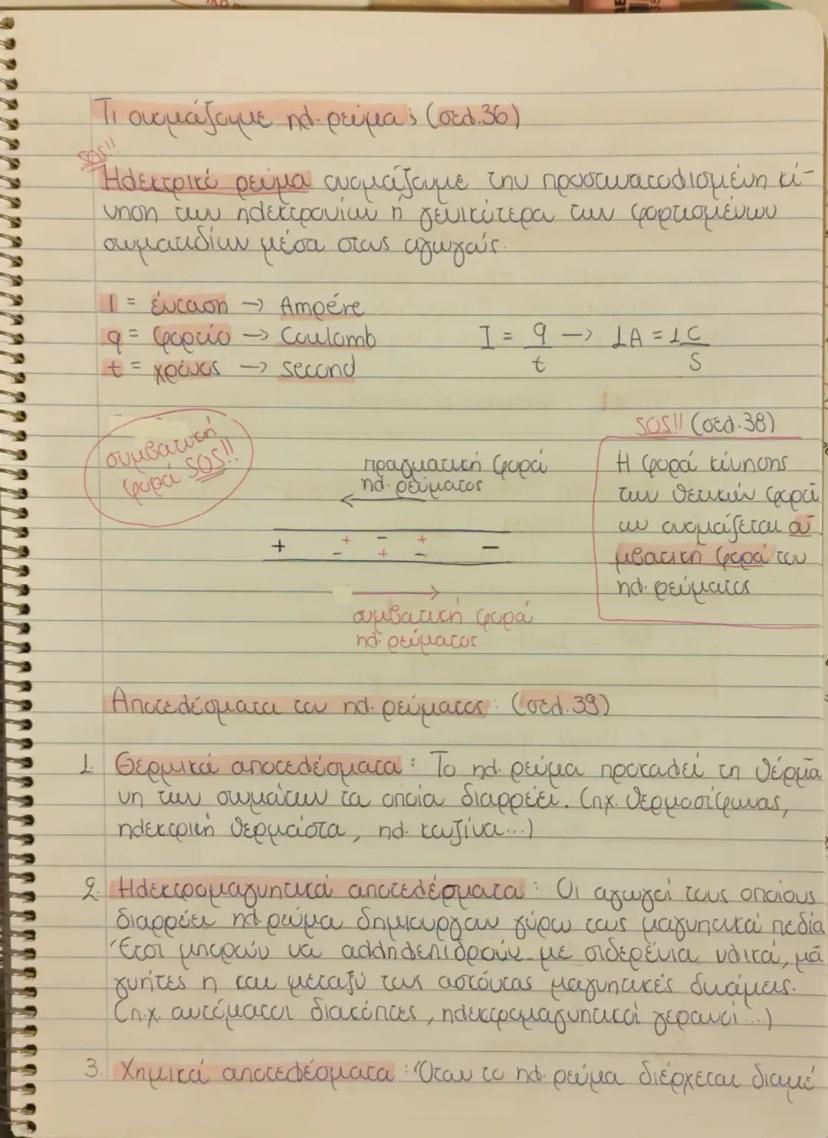 Τι ονομάζουμε ηλ. ρεύμα; (σελ.36)
SOS!!
Ηλεκτρικό ρεύμα ονομάζουμε την προσανατολισμένη κί-
νηση των ηλεκτρονίων ή γενικότερα των φορτισμένων
σωματιδίων μέσα στους αγωγούς.
I = ένταση → Ampére
q = φορτίο → Coulomb
t = χρόνος → second
I = q/t → 1A = 1C/S
συμβατική
φορά SOS!!
πραγματική φορά
ηλ. ρεύματος
←
+ + − + −
− + −
→
συμβατική φορά
ηλ. ρεύματος
SOS!! (σελ.38)
Η φορά κίνησης
των θετικών φορτί
ων ονομάζεται συ
μβατική φορά του
ηλ. ρεύματος
Αποτελέσματα του ηλ. ρεύματος: (σελ.39)
1. Θερμικά αποτελέσματα: Το ηλ. ρεύμα προκαλεί τη θέρμα
νη των σωμάτων τα οποία διαρρέει. (πχ. θερμοσίφωνας,
ηλεκτρική θερμάστα, ηλ. κουζίνα...)
2. Ηλεκτρομαγνητικά αποτελέσματα: Οι αγωγοί τους οποίους
διαρρέει ηλ. ρεύμα δημιουργούν γύρω τους μαγνητικά πεδία
Έτσι μπορούν να αλληλεπιδρούν με σιδερένια υλικά, μα
γνήτες η και μεταξύ τους ασκόντας μαγνητικές δυνάμεις.
(π.χ. αυτόματοι διακόπτες, ηλεκτρομαγνητικοί γερανοί...)
3. Χημικά αποτελέσματα: Όταν το ηλ. ρεύμα διέρχεται διαμέ